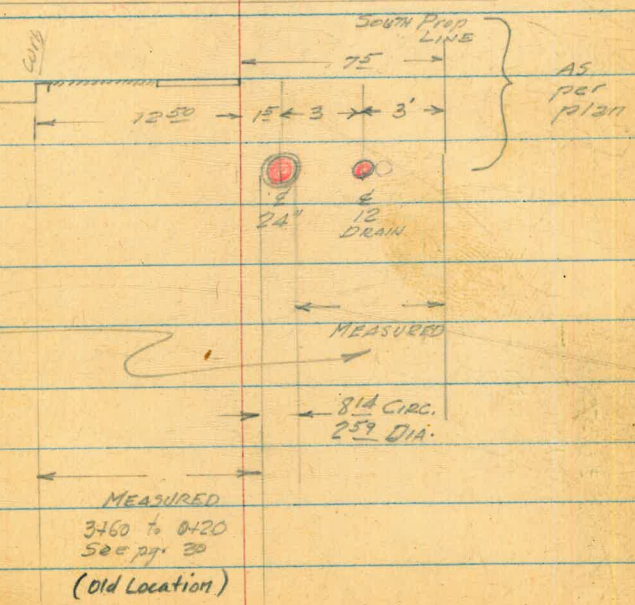 Curb
South Prop
LINE
7 5
AS
per
plan
12 50
1 5
3
3'
℄
24"
℄
12
DRAIN
MEASURED
8 14 CIRC.
2 59 DIA.
MEASURED
3+60 to 0+20
SEE pg. 30
(Old Location)